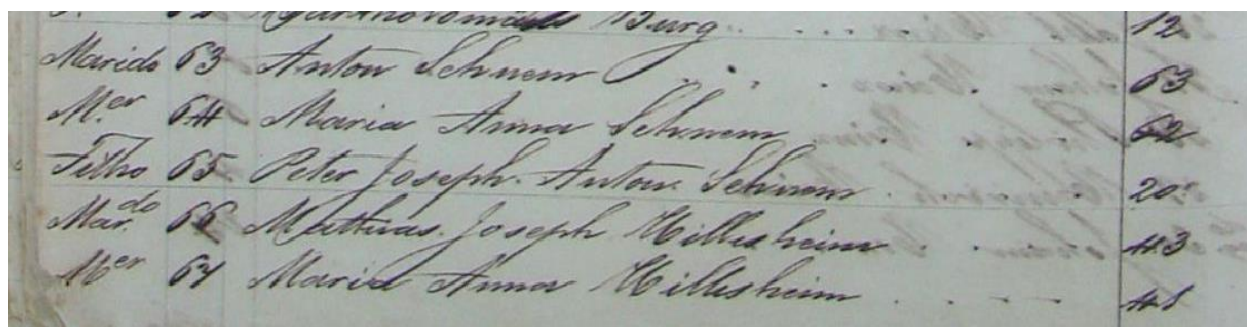 62 Bartholomäus Burg 12
Marido 63 Anton Schnem 63
M.er 64 Maria Anna Schnem 62
Filho 65 Peter Joseph Anton Schnem 20
Mar.do 66 Mathias Joseph Hillesheim 43
M.er 67 Maria Anna Hillesheim